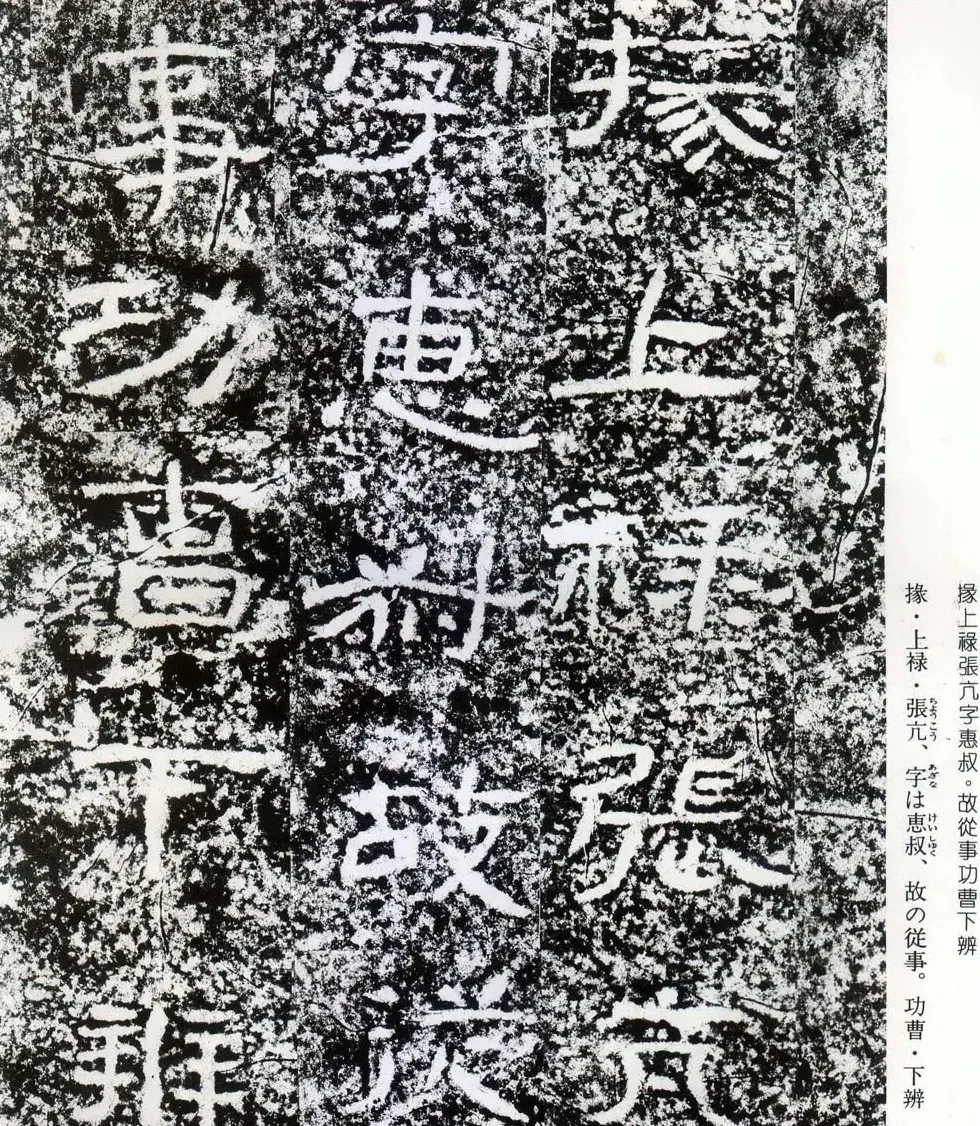 掾上禄張亢字惠叔。故從事功曹下辨
掾・上禄・張亢、字は恵叔、故の従事。功曹・下辨
ちょうこう
あざな
けいしゅく
掾上禄張亢
字惠叔故從
事功曹下辨